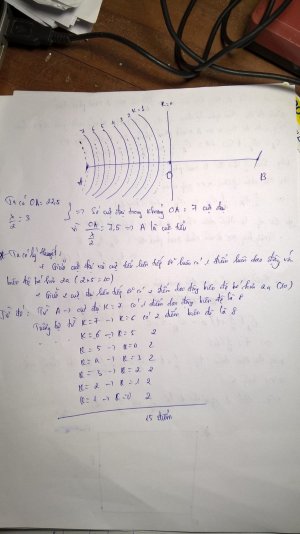 7 6 5 4 3 2 K=1 K=0
A O B
Ta có OA = 22,5
λ/2 = 3
} => Số cực đại trong khoảng OA = 7 cực đại
vì OA/(λ/2) = 7,5 => A là cực tiểu
Ta có lý thuyết:
+ Giữa cực đại và cực tiểu liên tiếp có 1 điểm luôn dao động với
biên độ
+ Giữa 2 cực đại liên tiếp có 2 điểm dao động biên độ
Từ A -> cực đại K = 7 có 1 điểm dao động biên độ là 8
Tương tự từ K = 7 -> K = 6 có 2 điểm biên độ là 8
K = 6 -> K = 5 2
K = 5 -> K = 4 2
K = 4 -> K = 3 2
K = 3 -> K = 2 2
K = 2 -> K = 1 2
K = 1 -> K = 0 2
15 điểm